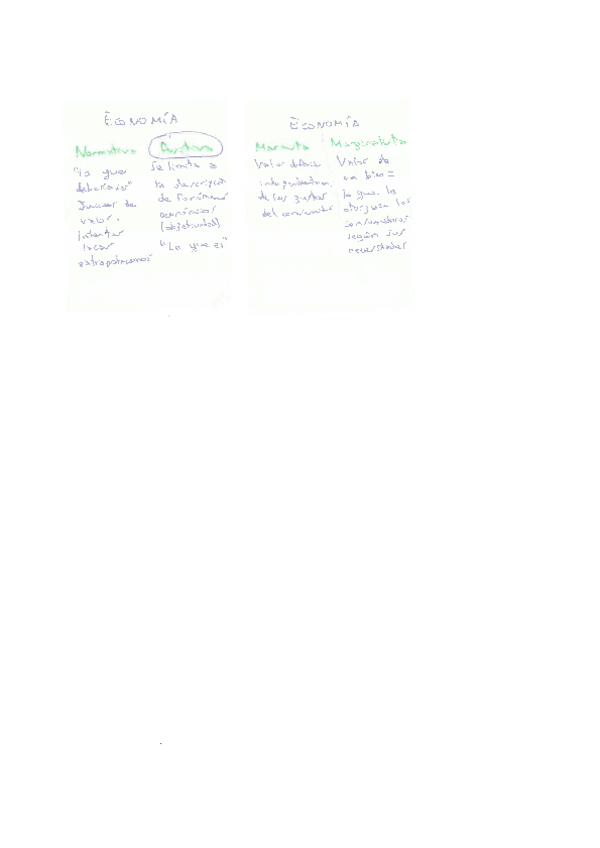 ECONOMÍA
Normativa
"lo que
debería ser"
Juicios de
valor.
intentar
sacar
Positiva
Se limita a
la descripción
de fenómenos
económicos
(objetividad)
"Lo que es"
ECONOMÍA
Marxista
Valor
de los gustos
del consumidor
Marginalista
Valor de
un bien =
lo que le
otorguen los
consumidores
según sus
necesidades